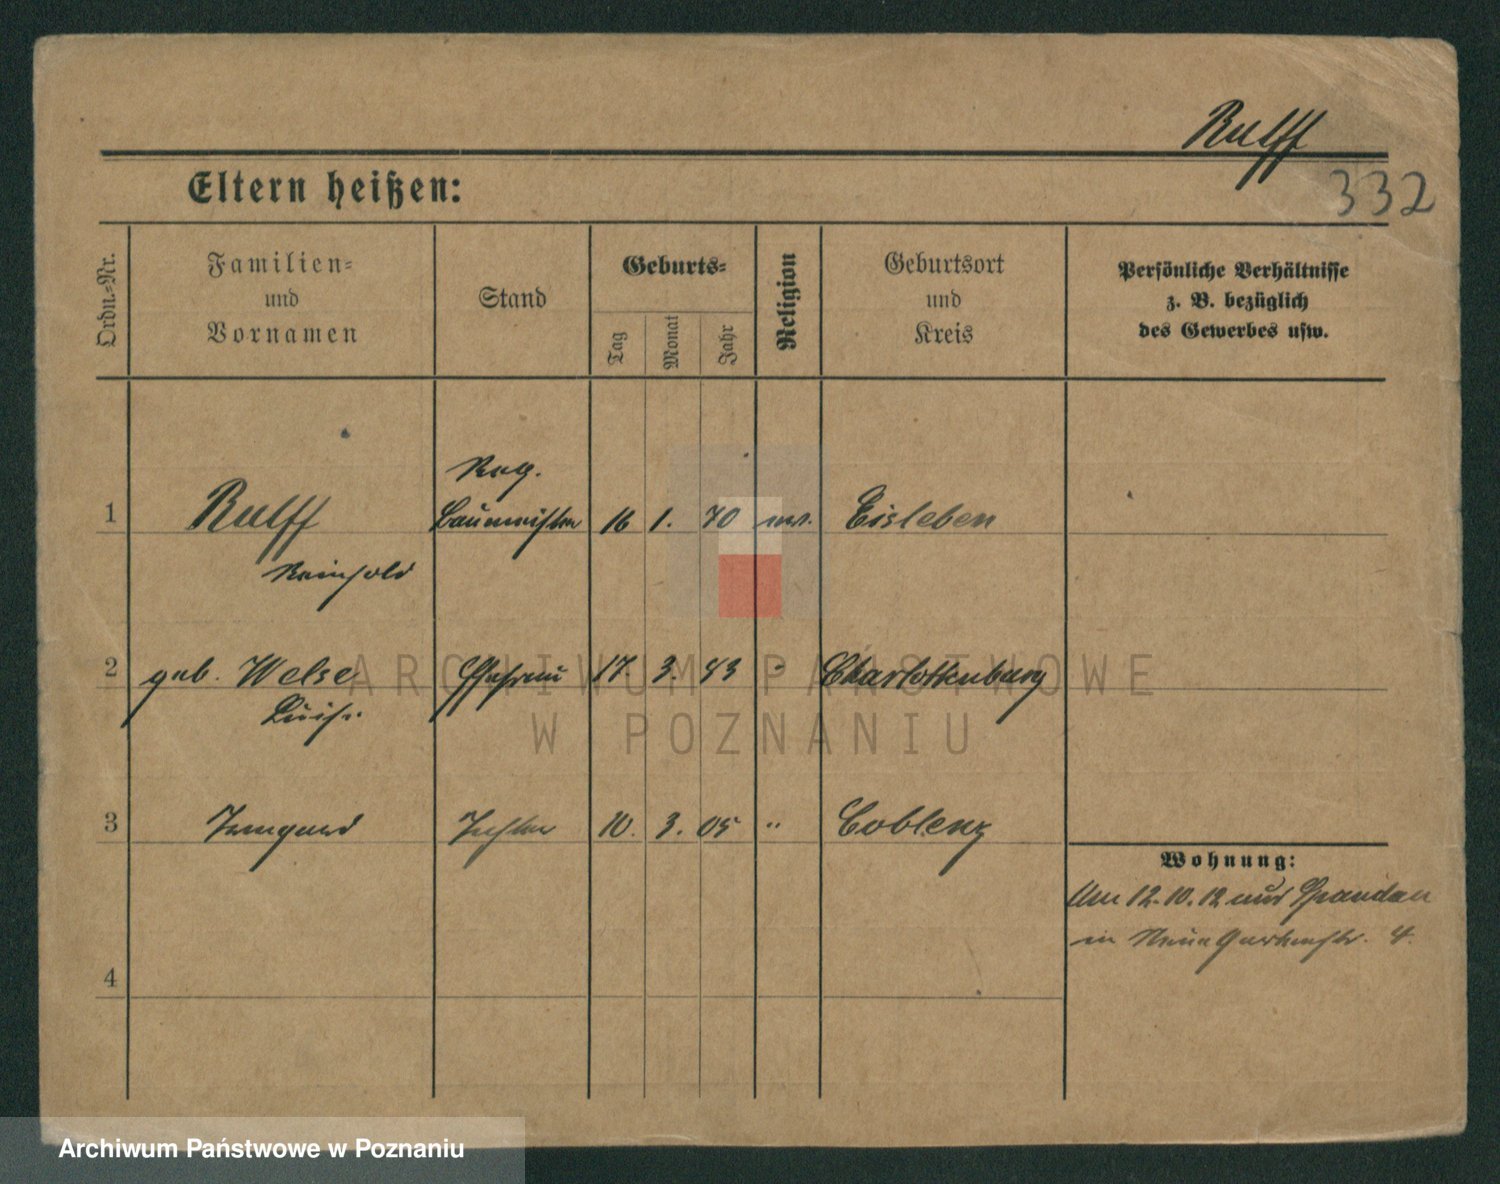 Rulff
332
Eltern heißen:
Ordn.-Nr.
Familien-
und
Vornamen
Stand
Geburts-
Tag
Monat
Jahr
Religion
Geburtsort
und
Kreis
Persönliche Verhältnisse
z. B. bezüglich
des Gewerbes usw.
Reg.
1 Rulff Baumeister 16 1. 70 ev. Eisleben
Reinhold
2 geb. Welse Ehefrau 17. 3. 83 " Charlottenburg
Luise
3 Irmgard Tochter 10. 3. 05 " Coblenz
Wohnung:
Am 12.10.12 aus Spandau
in Neue Gartenstr. 4.
4
ARCHIWUM PAŃSTWOWE
W POZNANIU
Archiwum Państwowe w Poznaniu